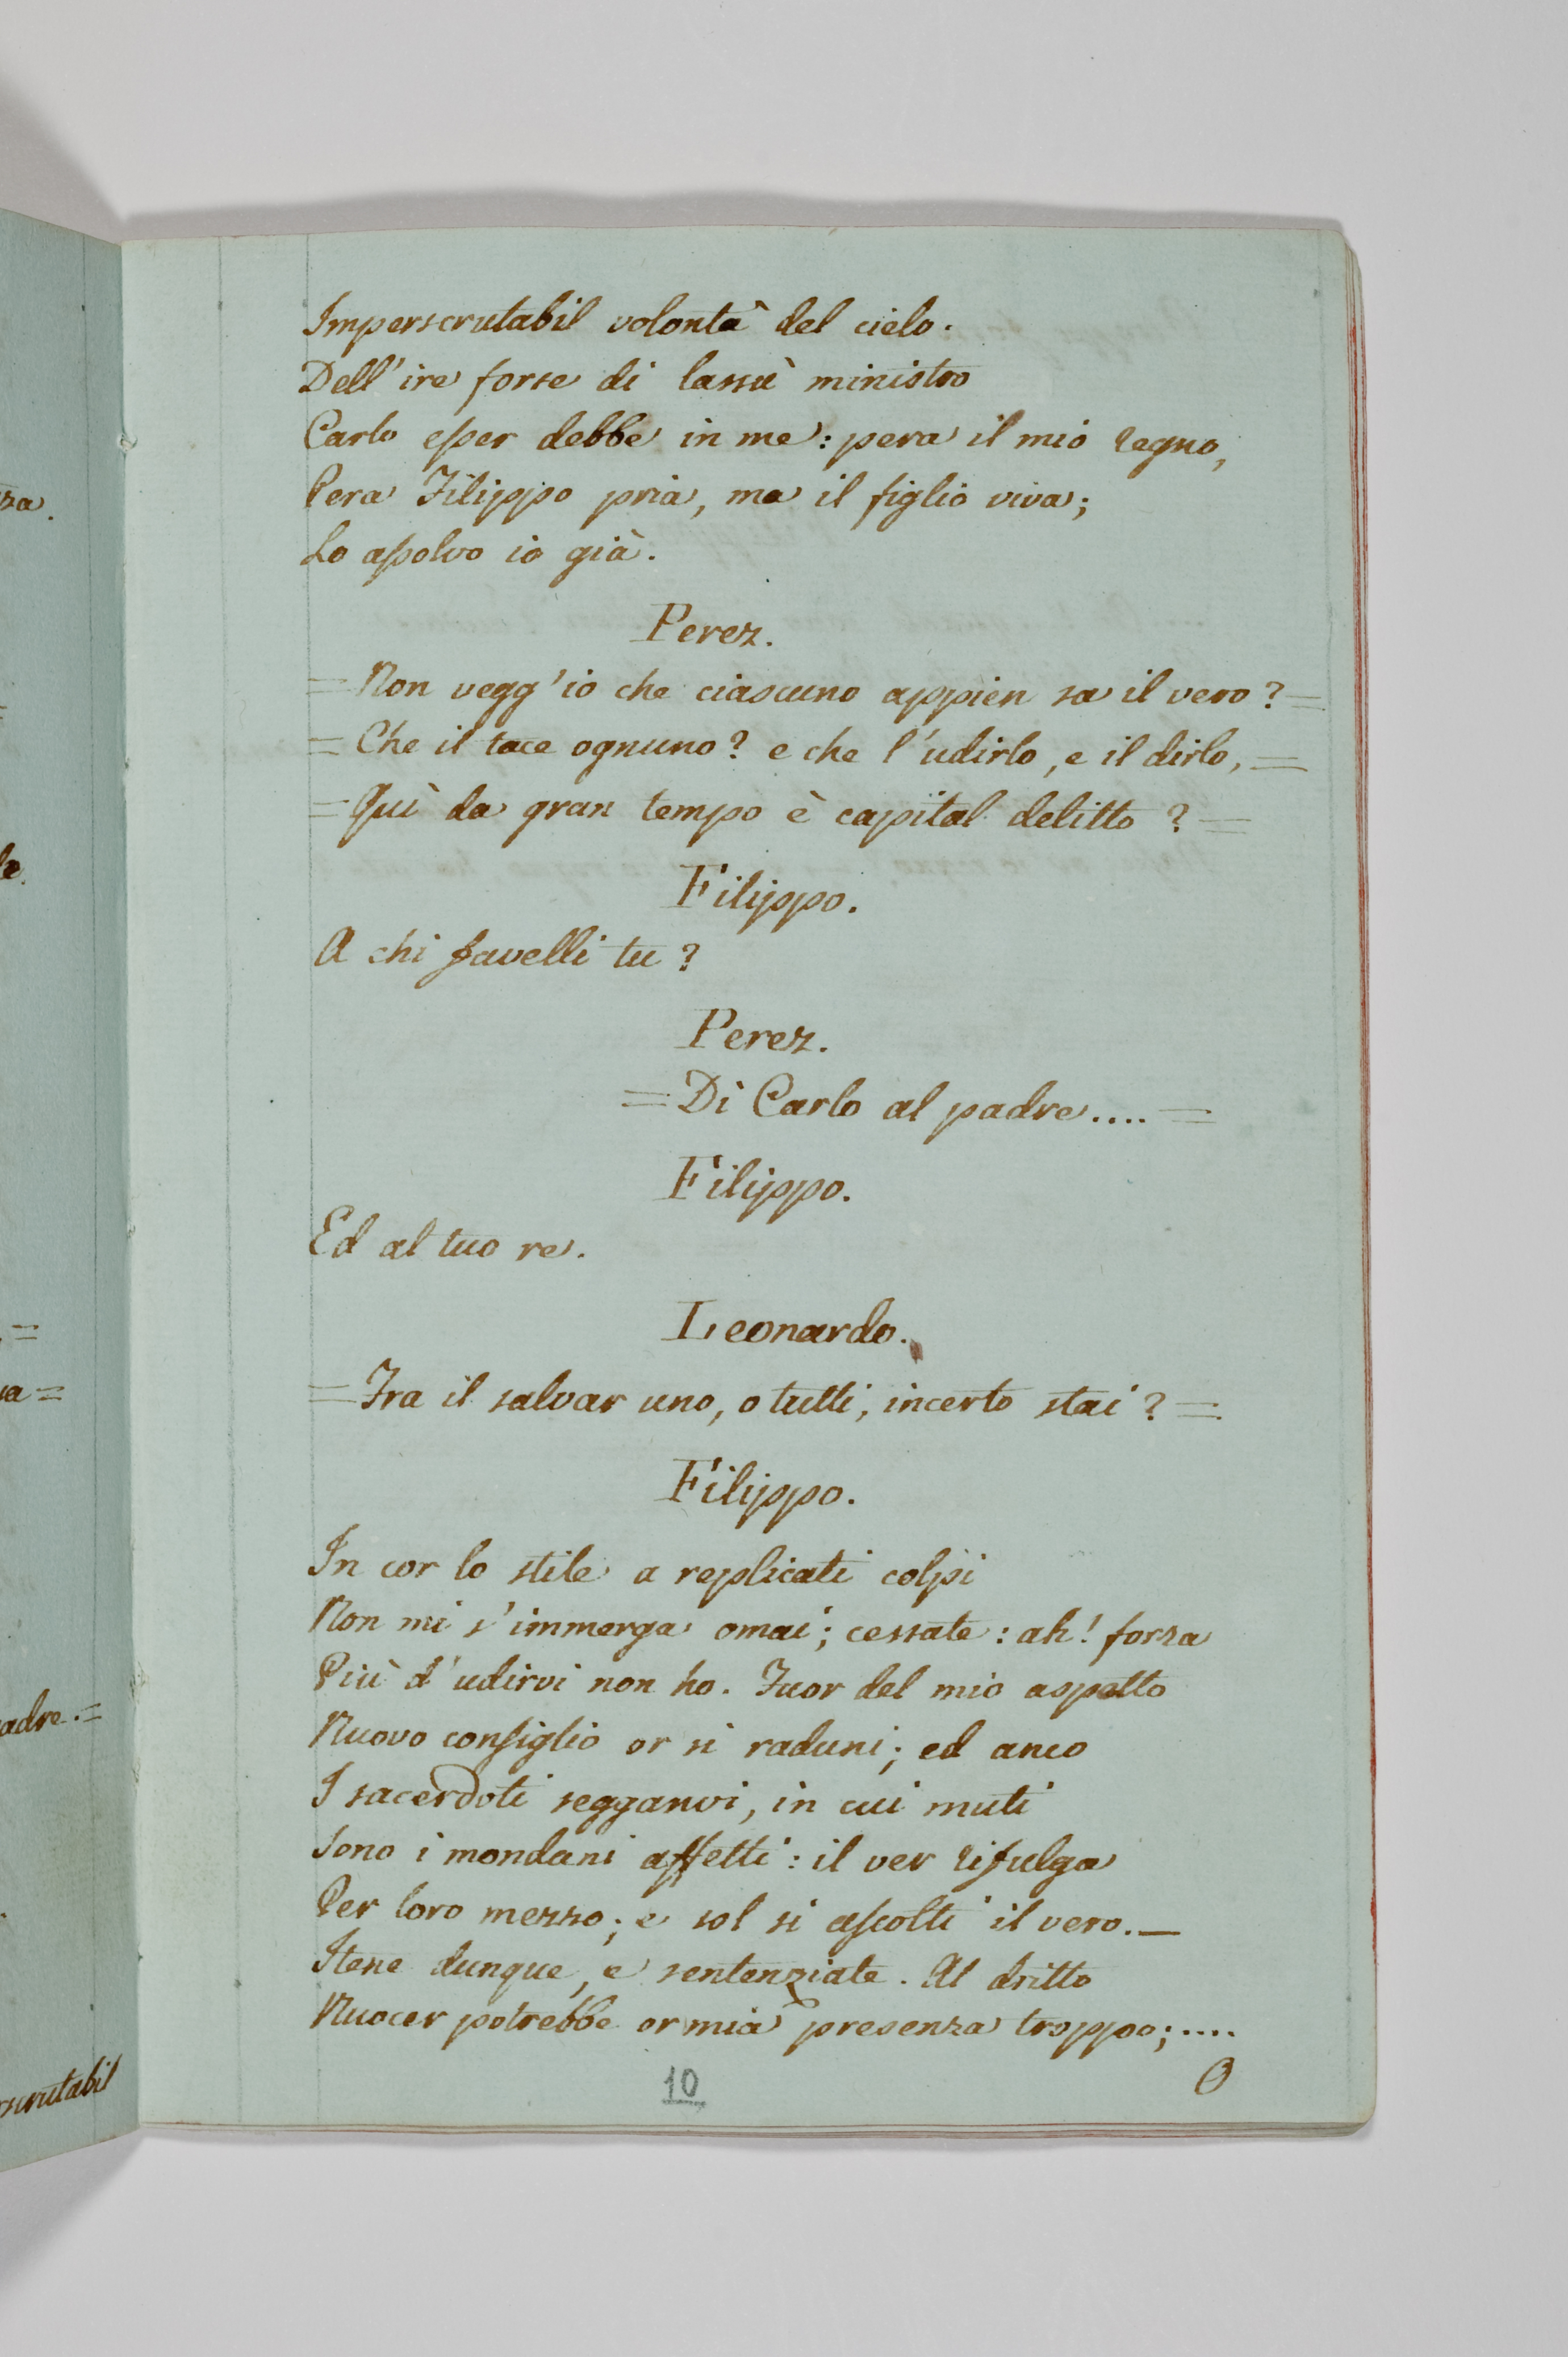 Imperscrutabil volontà del cielo.
Dell'ire forse di lassù ministro
Carlo esser debbe in me: pera il mio regno,
Pera Filippo pria, ma il figlio viva;
Lo assolvo io già.
Perez.
= Non vegg'io che ciascuno appien sa il vero? =
= Che il tace ognuno? e che l'udirlo, e il dirlo, =
= Quì da gran tempo è capital delitto? =
Filippo.
A chi favelli tu?
Perez.
= Di Carlo al padre.... =
Filippo.
Ed al tuo re.
Leonardo.
= Fra il salvar uno, o tutti, incerto stai? =
Filippo.
In cor lo stile a replicati colpi
Non mi s'immerga omai; cessate: ah! forza
Più d'udirvi non ho. Fuor del mio aspetto
Nuovo consiglio or si raduni; ed anco
I sacerdoti segganvi, in cui muti
Sono i mondani affetti: il ver rifulga
Per loro mezzo; e sol si ascolti il vero. —
Itene dunque, e sentenziate. Al dritto
Nuocer potrebbe or mia presenza troppo;....
O
10
za.
le
=
a =
adre. =
rscrutabil